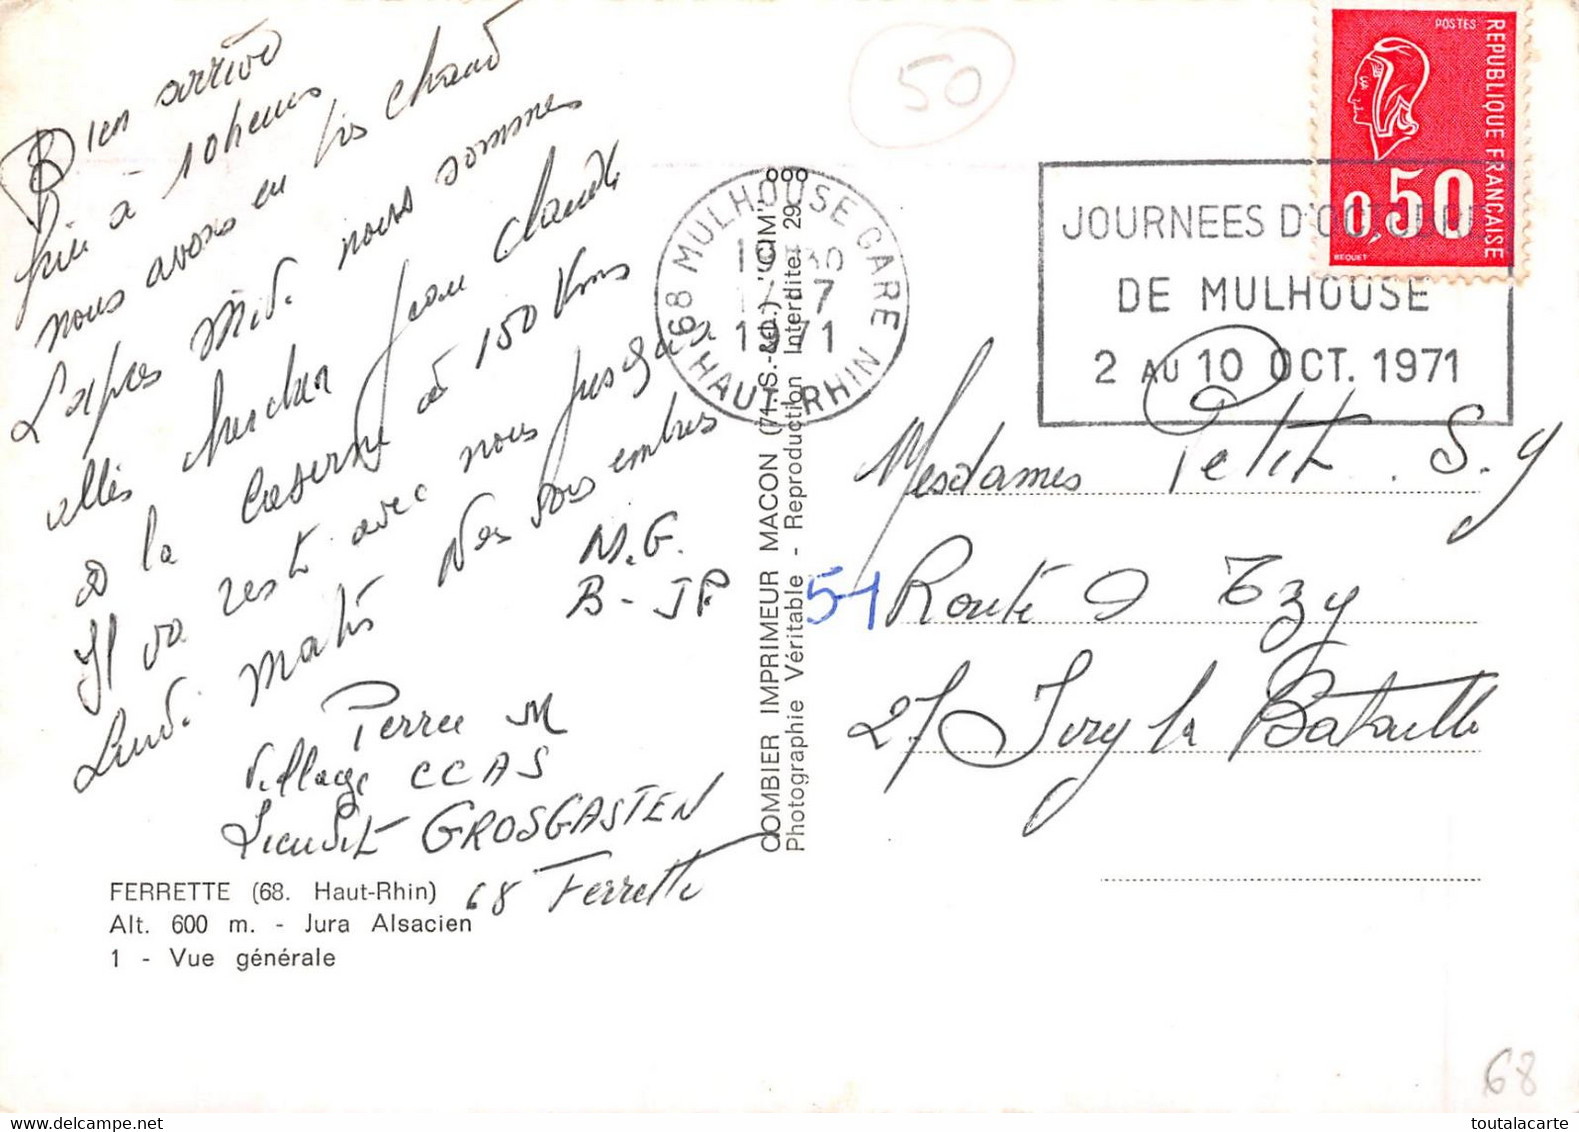 Bien arrivé
hier à 10 heures
nous avons eu très chaud
L'apres Mid. nous sommes
allés chercher Jean Claude
a la Caserne à 150 Kms
Il va resté avec nous jusqu'a
Lundi matin Nos vous embrs
M.G.
B - JP.
Perree M
Village CCAS
Lieudit GROSGASTEN
68 Ferrette
FERRETTE (68. Haut-Rhin)
Alt. 600 m. - Jura Alsacien
1 - Vue générale
COMBIER IMPRIMEUR MACON (71.-S.-&-L.) "CIM"
Photographie Véritable - Reproduction Interdite. 29
50
68 MULHOUSE GARE
HAUT-RHIN
1971
JOURNEES D'OCTOBRE
DE MULHOUSE
2 AU 10 OCT. 1971
POSTES
REPUBLIQUE FRANÇAISE
0,50
BEQUET
Mesdames Petit S. y
51
Route d Ezy
27 Ivry la Bataille
68
toutalacarte